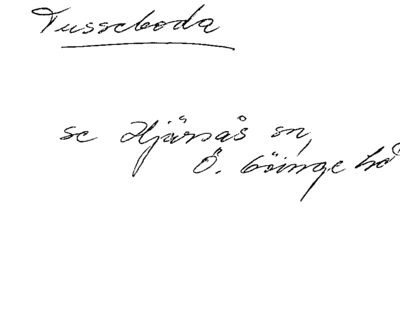 Tusseboda
se Hjärsås sn,
Ö. Göinge hd